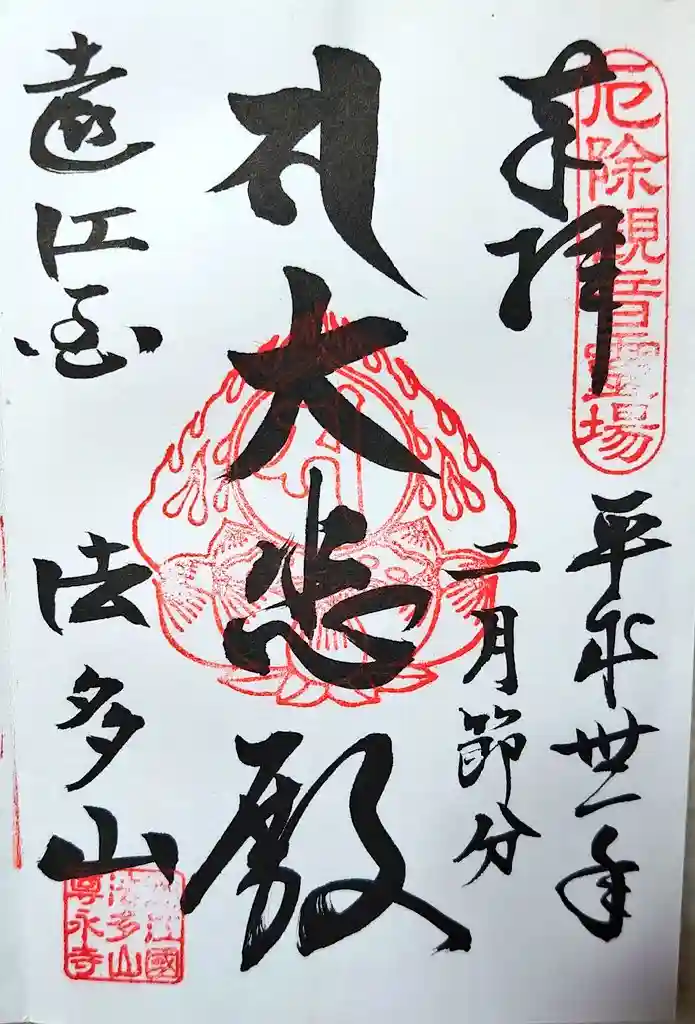 厄除観音霊場
奉拝
平成丗一年
二月節分
大悲殿
遠江国
法多山
遠江國
法多山
尊永寺